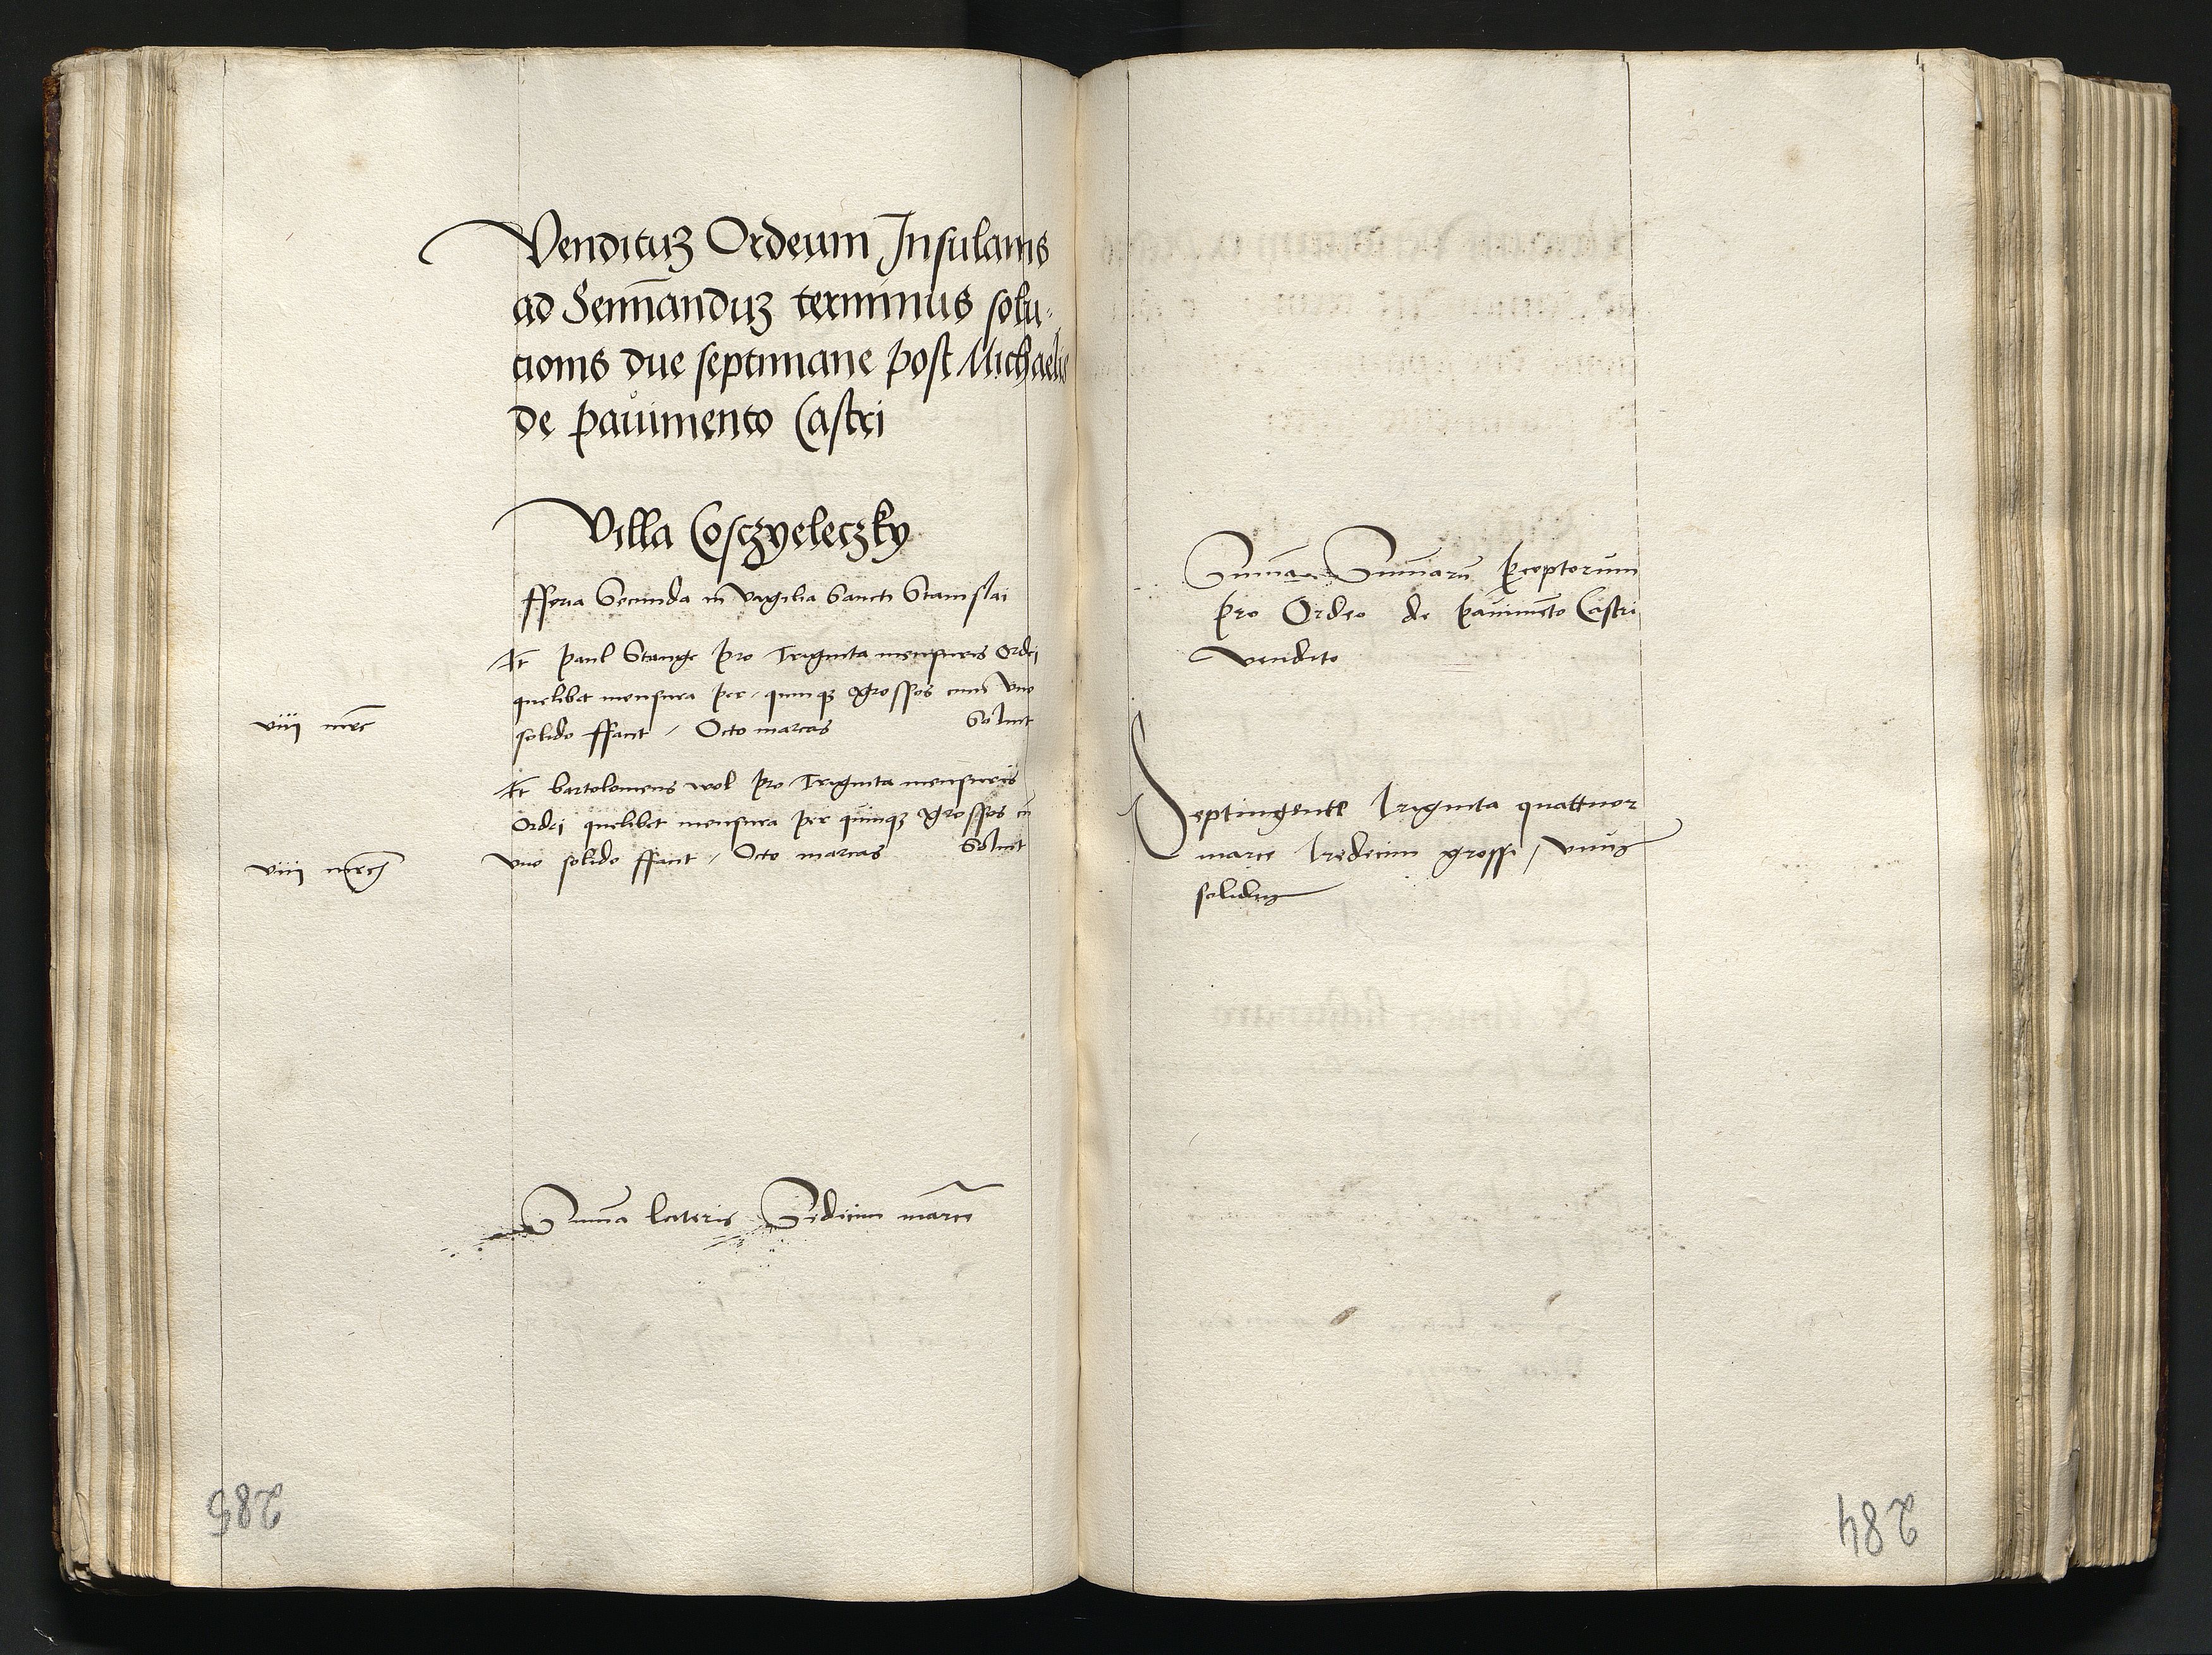 Vendituʒ Ordeum Insulanis
ad Semina̅nduʒ terminus solu-
tionis due septimane post Michaelis
de pavimento Castri
Villa Cosczyeleczky
fferia Secunda in vigilia Sancti Stanislai
It paul Stange pro Triginta mensuris ordei
quelibet mensura per quinqʒ grossos cum vno
viii mrc
solido ffacit / Octo marcas Soluit
It bartolomeus wol pro Triginta mensuris
Ordei quelibet mensura per quinqʒ grossos cu̅
vno solido ffacit / Octo marcas Soluit
viii mrc
Su̅ma lateris Sedecim marce
285
Su̅ma Su̅maru̅ perceptorum
pro Ordeo de pavime̅to Castri
vendito
Septingente Triginta quattuor
marce Tredecim grossi / vnuʒ
soliduʒ
284